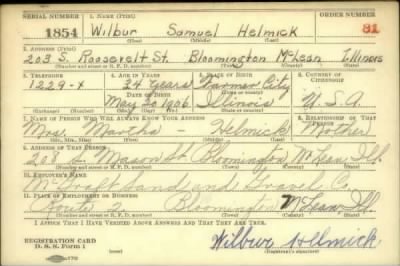 SERIAL NUMBER 1. NAME (Print)
1854 Wilbur Samuel Helmick 81
(First) (Middle) (Last)
2. ADDRESS (Print)
203 S. Roosevelt St. Bloomington McLean Illinois
(Number and street or R. F. D. number) (Town) (County) (State)
3. TELEPHONE 4. AGE IN YEARS 5. PLACE OF BIRTH 6. COUNTRY OF CITIZENSHIP
1229-X 34 Years City
DATE OF BIRTH
May 20 1906 Illinois U.S.A.
(Exchange) (Number) (Mo.) (Day) (Yr.) (State or country)
7. NAME OF PERSON WHO WILL ALWAYS KNOW YOUR ADDRESS 8. RELATIONSHIP OF THAT PERSON
Mrs. Martha - Helmick Mother
(Mr., Mrs., Miss) (First) (Middle) (Last)
9. ADDRESS OF THAT PERSON
S. Mason St. Bloomington McLean Ill.
(Number and street or R. F. D. number) (Town) (County) (State)
10. EMPLOYER'S NAME
Sand and Gravel Co.
11. PLACE OF EMPLOYMENT OR BUSINESS
Route 2 Bloomington McLean Ill.
(Number and street or R. F. D. number) (Town) (County) (State)
I AFFIRM THAT I HAVE VERIFIED ABOVE ANSWERS AND THAT THEY ARE TRUE.
REGISTRATION CARD
D. S. S. Form 1 Wilbur Helmick